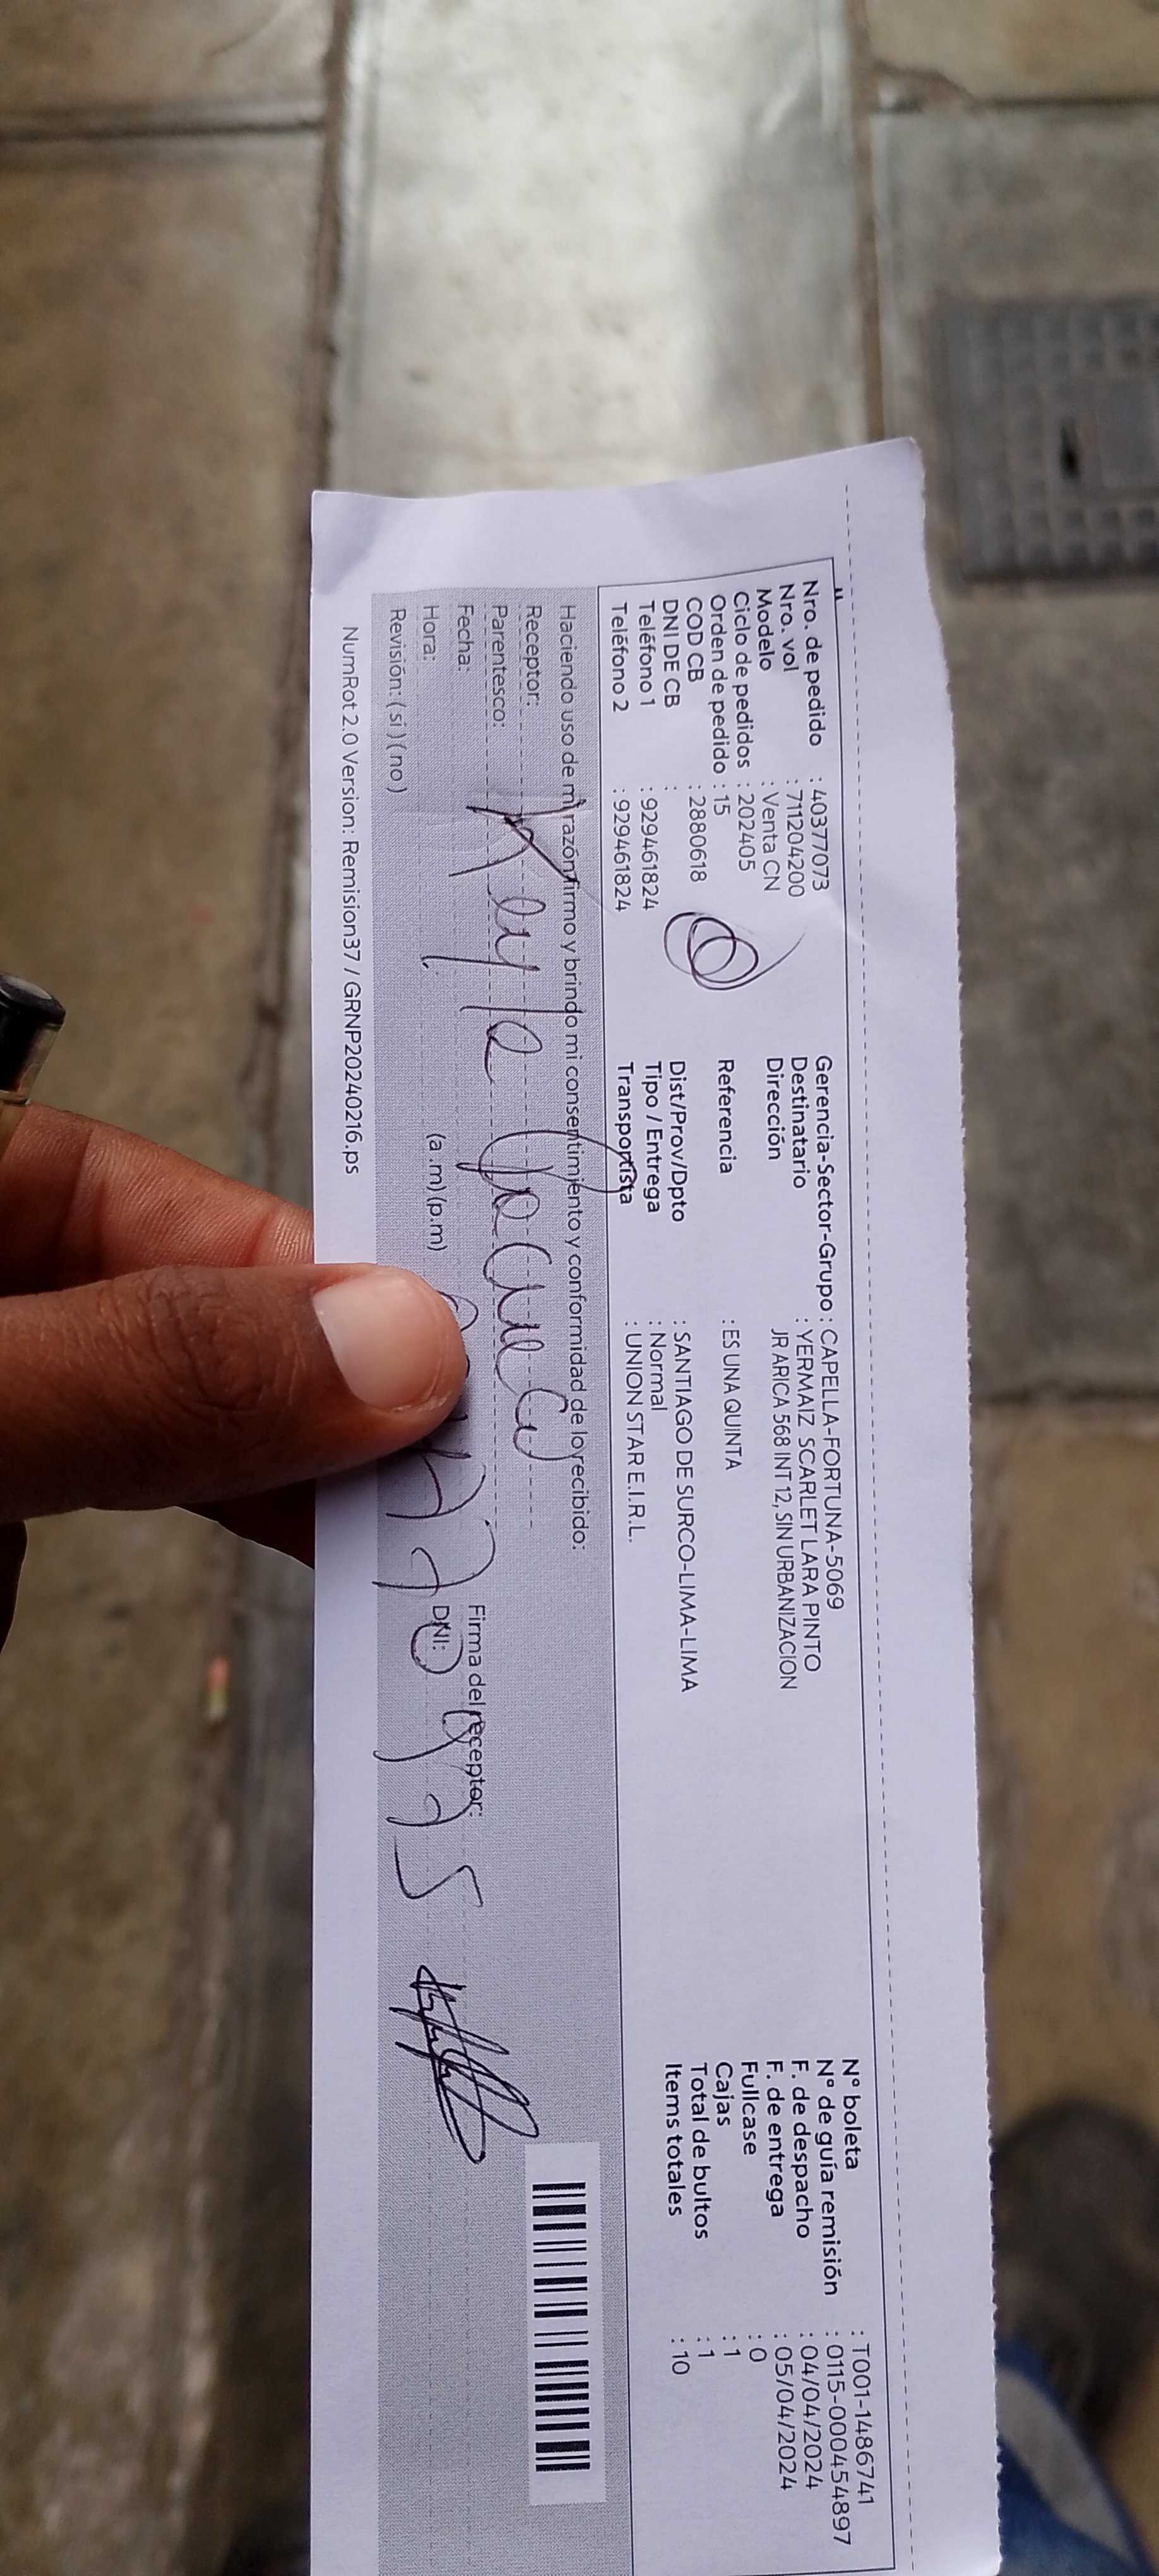 Nro. de pedido : 40377073
Nro. vol : 711204200
Modelo : Venta CN
Ciclo de pedidos : 202405
Orden de pedido : 15
COD CB : 2880618
DNI DE CB :
Teléfono 1 : 929461824
Teléfono 2 : 929461824
Gerencia-Sector-Grupo : CAPELLA-FORTUNA-5069
Destinatario : YERMAIZ SCARLET LARA PINTO
Dirección JR ARICA 568 INT 12, SIN URBANIZACION
Referencia : ES UNA QUINTA
Dist/Prov/Dpto : SANTIAGO DE SURCO-LIMA-LIMA
Tipo / Entrega : Normal
Transportista : UNION STAR E.I.R.L.
N° boleta : T001-1486741
N° de guía remisión : 0115-000454897
F. de despacho : 04/04/2024
F. de entrega : 05/04/2024
Fullcase : 0
Cajas : 1
Total de bultos : 1
Items totales : 10
Haciendo uso de mi razón firmo y brindo mi consentimiento y conformidad de lo recibido:
Receptor:
Parentesco:
Fecha:
Hora: (a .m) (p.m)
Revisión: ( si ) ( no )
Firma del receptor:
DNI:
NumRot 2.0 Version: Remision37 / GRNP20240216.ps